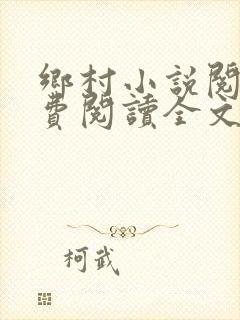 鄉村小説閱
費閱讀全文
柯武